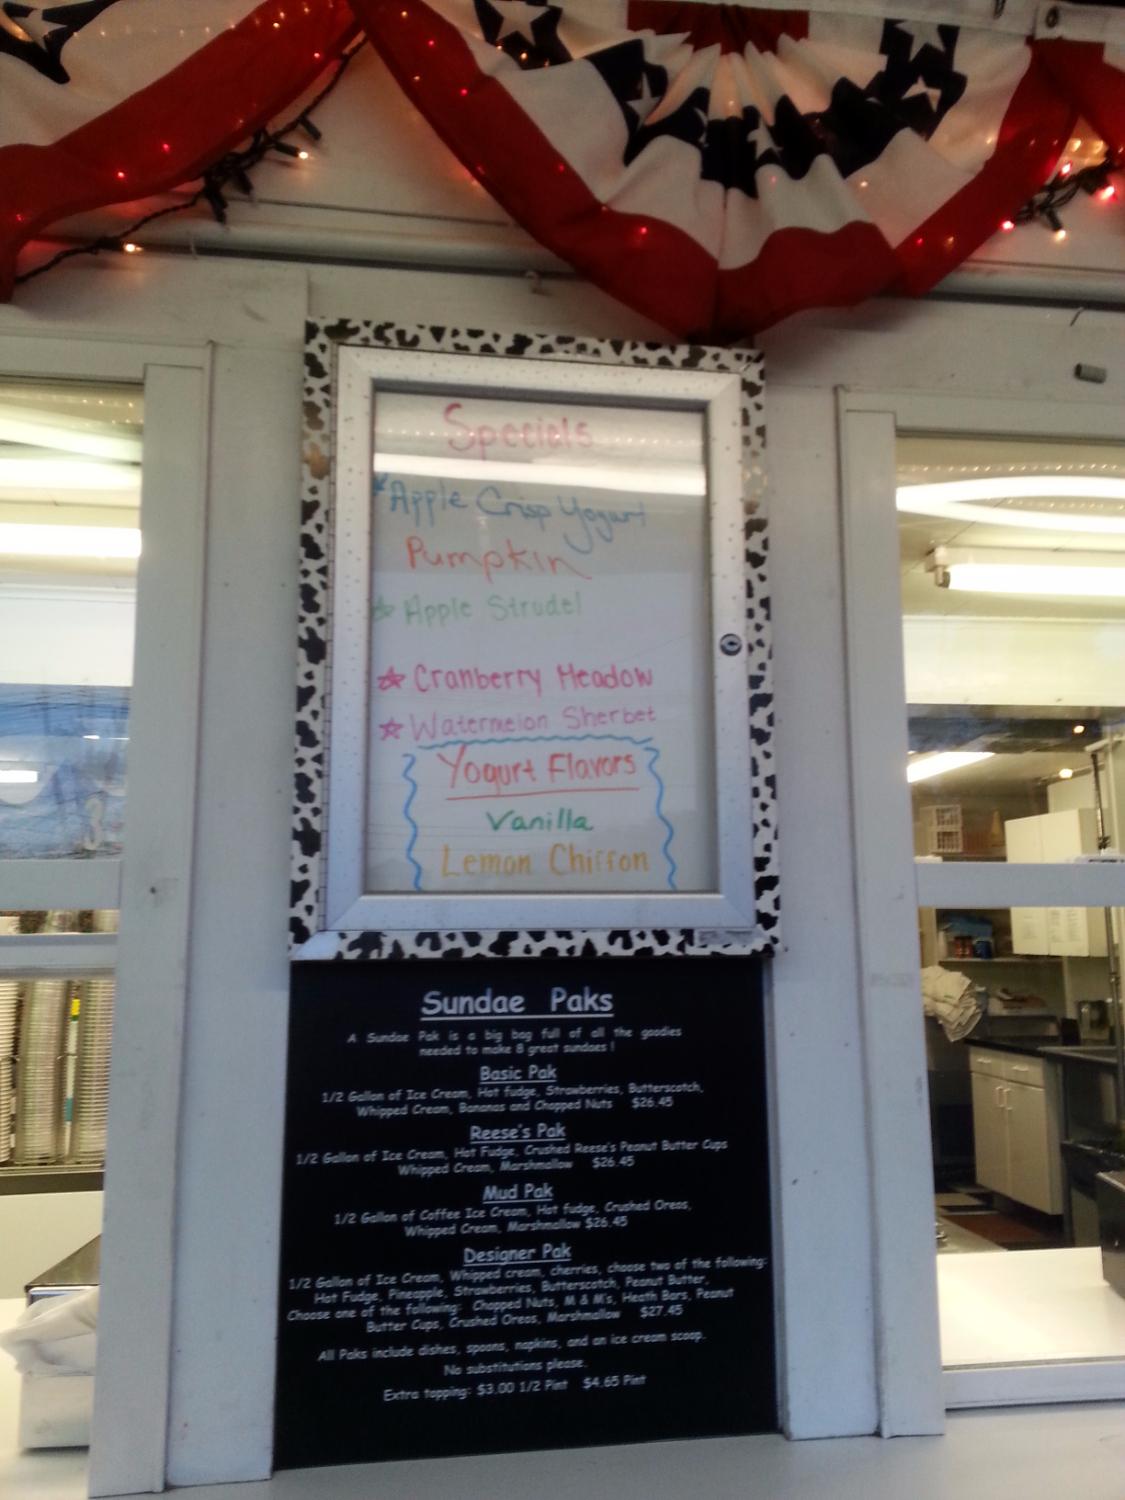 Specials
Apple Crisp Yogurt
Pumpkin
Apple Strudel
Cranberry Meadow
Watermelon Sherbet
Yogurt Flavors
Vanilla
Lemon Chiffon
Sundae Paks
A Sundae Pak is a big bag full of all the goodies
needed to make 8 great sundaes !
Basic Pak
1/2 Gallon of Ice Cream, Hot fudge, Strawberries, Butterscotch,
Whipped Cream, Bananas and Chopped Nuts $26.45
Reese's Pak
1/2 Gallon of Ice Cream, Hot Fudge, Crushed Reese's Peanut Butter Cups
Whipped Cream, Marshmallow $26.45
Mud Pak
1/2 Gallon of Coffee Ice Cream, Hot fudge, Crushed Oreos,
Whipped Cream, Marshmallow $26.45
Designer Pak
1/2 Gallon of Ice Cream, Whipped cream, cherries, choose two of the following:
Hot Fudge, Pineapple, Strawberries, Butterscotch, Peanut Butter,
Choose one of the following: Chopped Nuts, M & M's, Heath Bars, Peanut
Butter Cups, Crushed Oreos, Marshmallow $27.45
All Paks include dishes, spoons, napkins, and an ice cream scoop.
No substitutions please.
Extra topping: $3.00 1/2 Pint $4.65 Pint